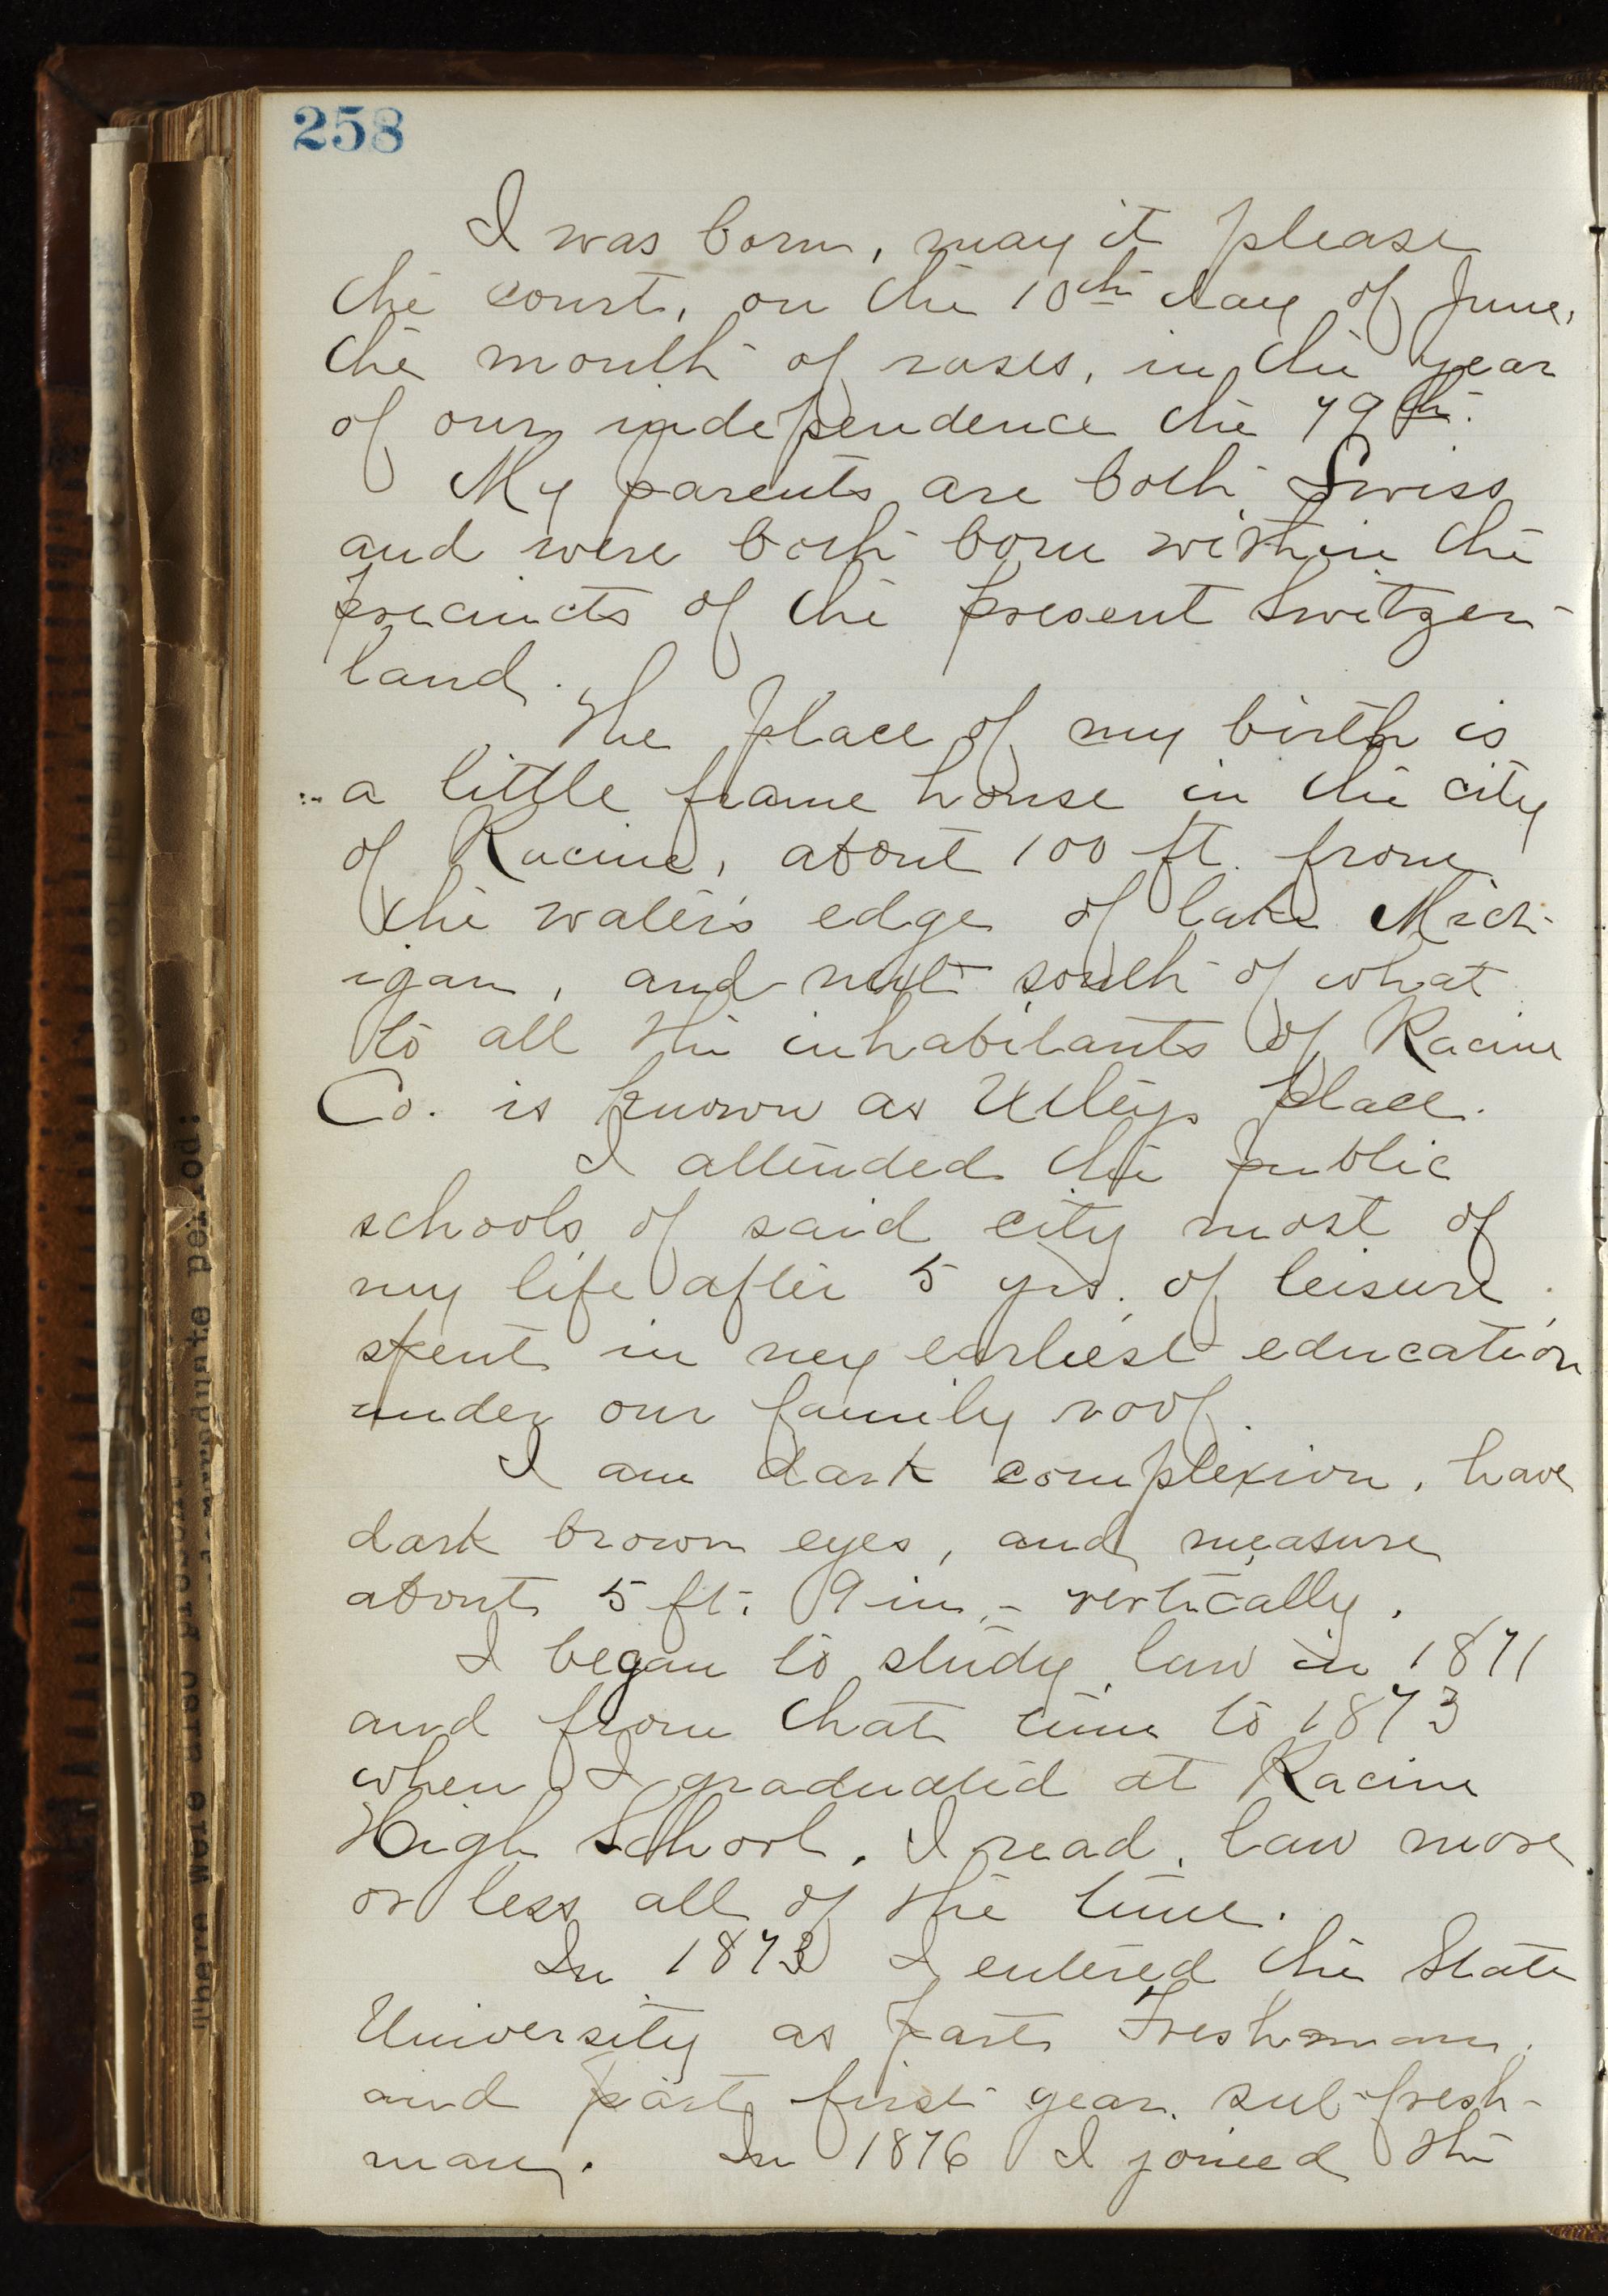 258
I was born, may it please
the court, on the 10th day of June,
the month of roses, in the year
of our independence the 79th.
My parents are both Swiss
and were both born within the
precincts of the present Switzer-
land.
The place of my birth is
a little frame house in the city
of Racine, about 100 ft. from
the water's edge of lake Mich-
igan, and next south of what
to all the inhabitants of Racine
Co. is known as Utley's place.
I attended the public
schools of said city most of
my life after 5 yrs. of leisure
spent in my earliest education
under our family roof.
I am dark complexion, have
dark brown eyes, and measure
about 5 ft. 9 in. - vertically.
I began to study law in 1871
and from that time to 1873
when I graduated at Racine
High School, I read law more
or less all of the time.
In 1873 I entered the State
University as part Freshman
and part first year sub-fresh-
man. In 1876 I joined the
"There were also
period: